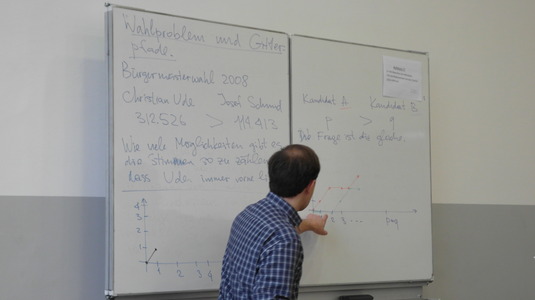 Wahlproblem und Gitter-
pfade.
Bürgermeisterwahl 2008
Christian Ude Josef Schmid
312.526 > 114.413
Wie viele Möglichkeiten gibt es
die Stimmen so zu zählen
dass Ude immer vorne
4
3
2
1
1 2 3 4
Kandidat A Kandidat B
p > q
Die Frage ist die gleiche.
2 3 ...
p+q